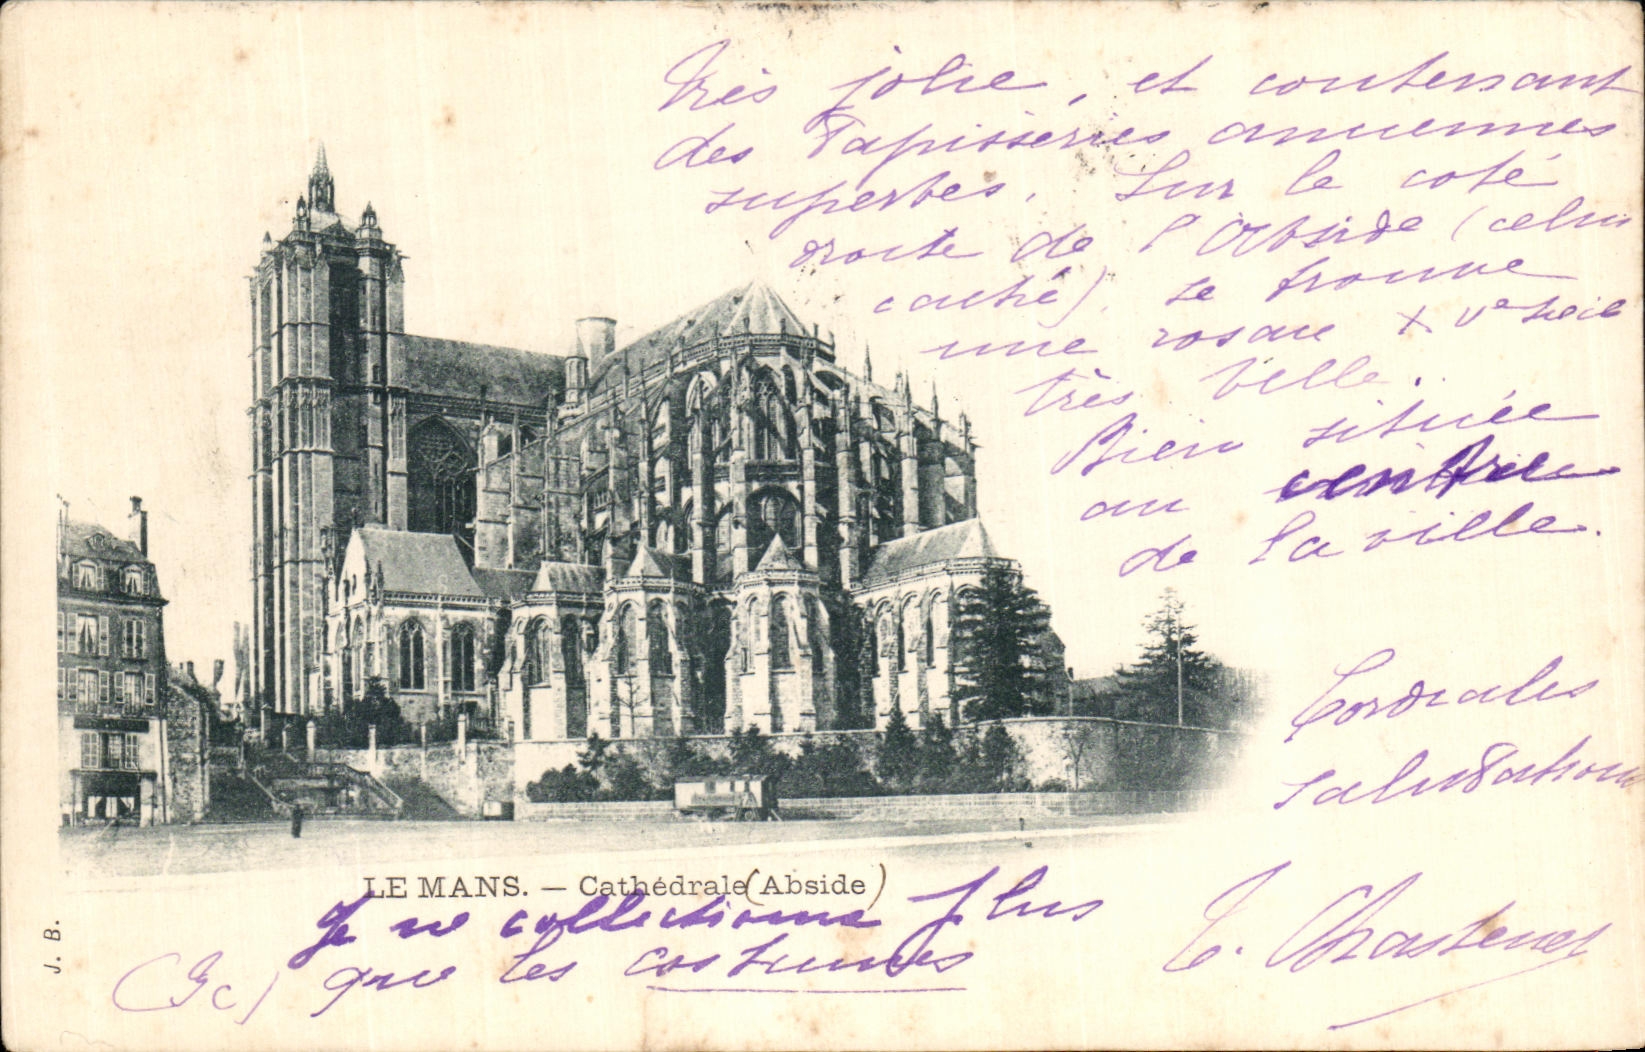 Très jolie, et contenant
des Tapisseries anciennes
superbes. Sur le coté
droite de l'Abside (celui
caché) se trouve
une rosace XVe siècle
très belle.
Bien située
au centre
de la ville.
Cordiales
salutations
LE MANS. — Cathédrale (Abside)
Je ne collectionne plus
que les costumes
J. B.
Chastenet